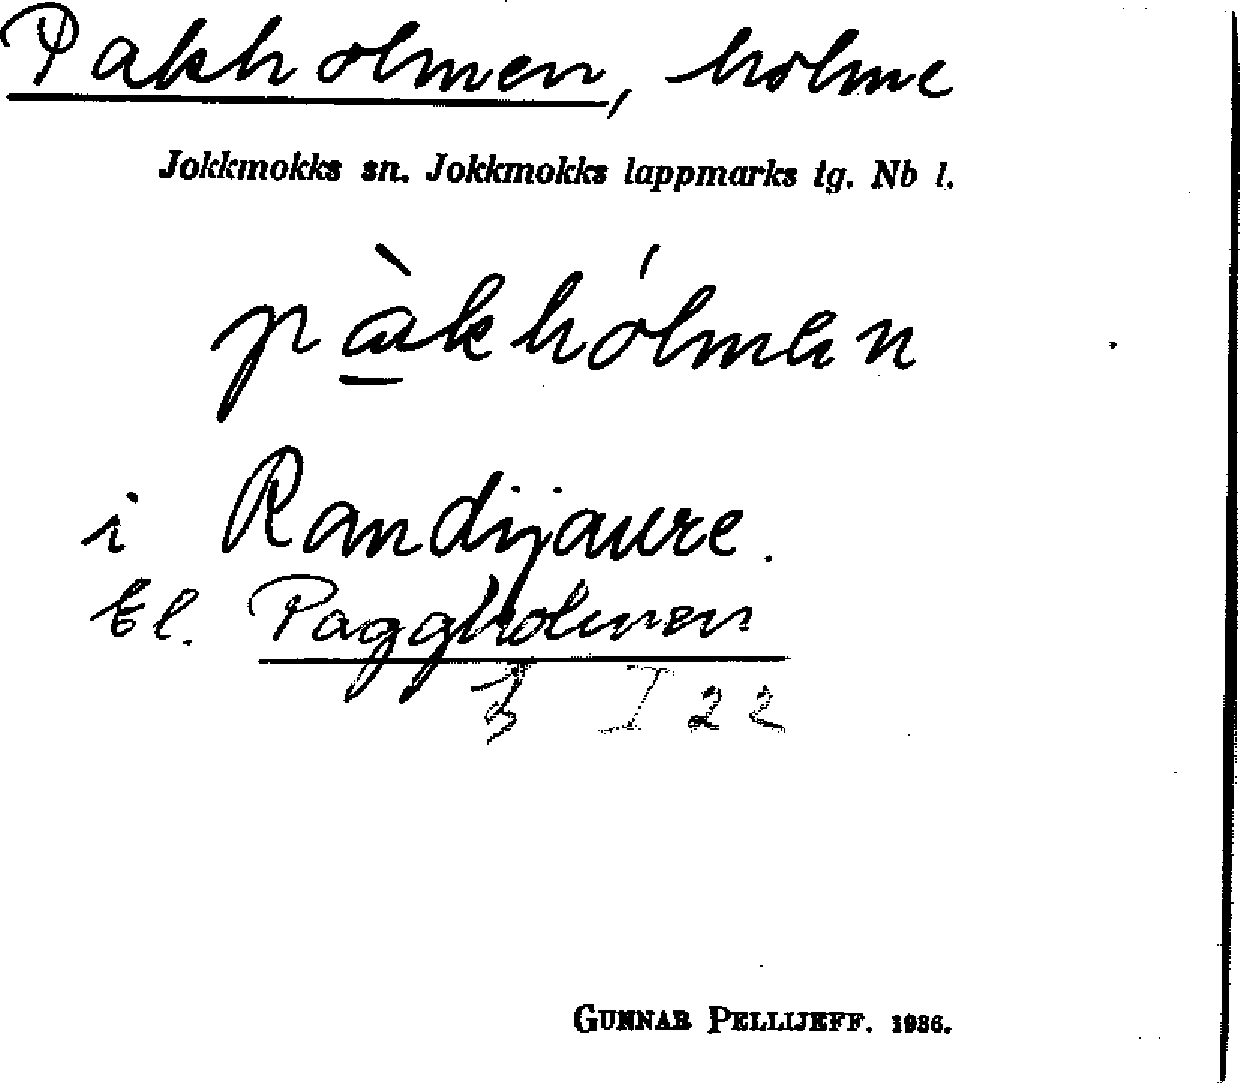 Pakholmen, holme
Jokkmokks sn. Jokkmokks lappmarks tg. Nb l.
pàkhólmen
i Randijaure.
El. Paggholmen
3 I 22
GUNNAR PELLIJEFF. 1986.